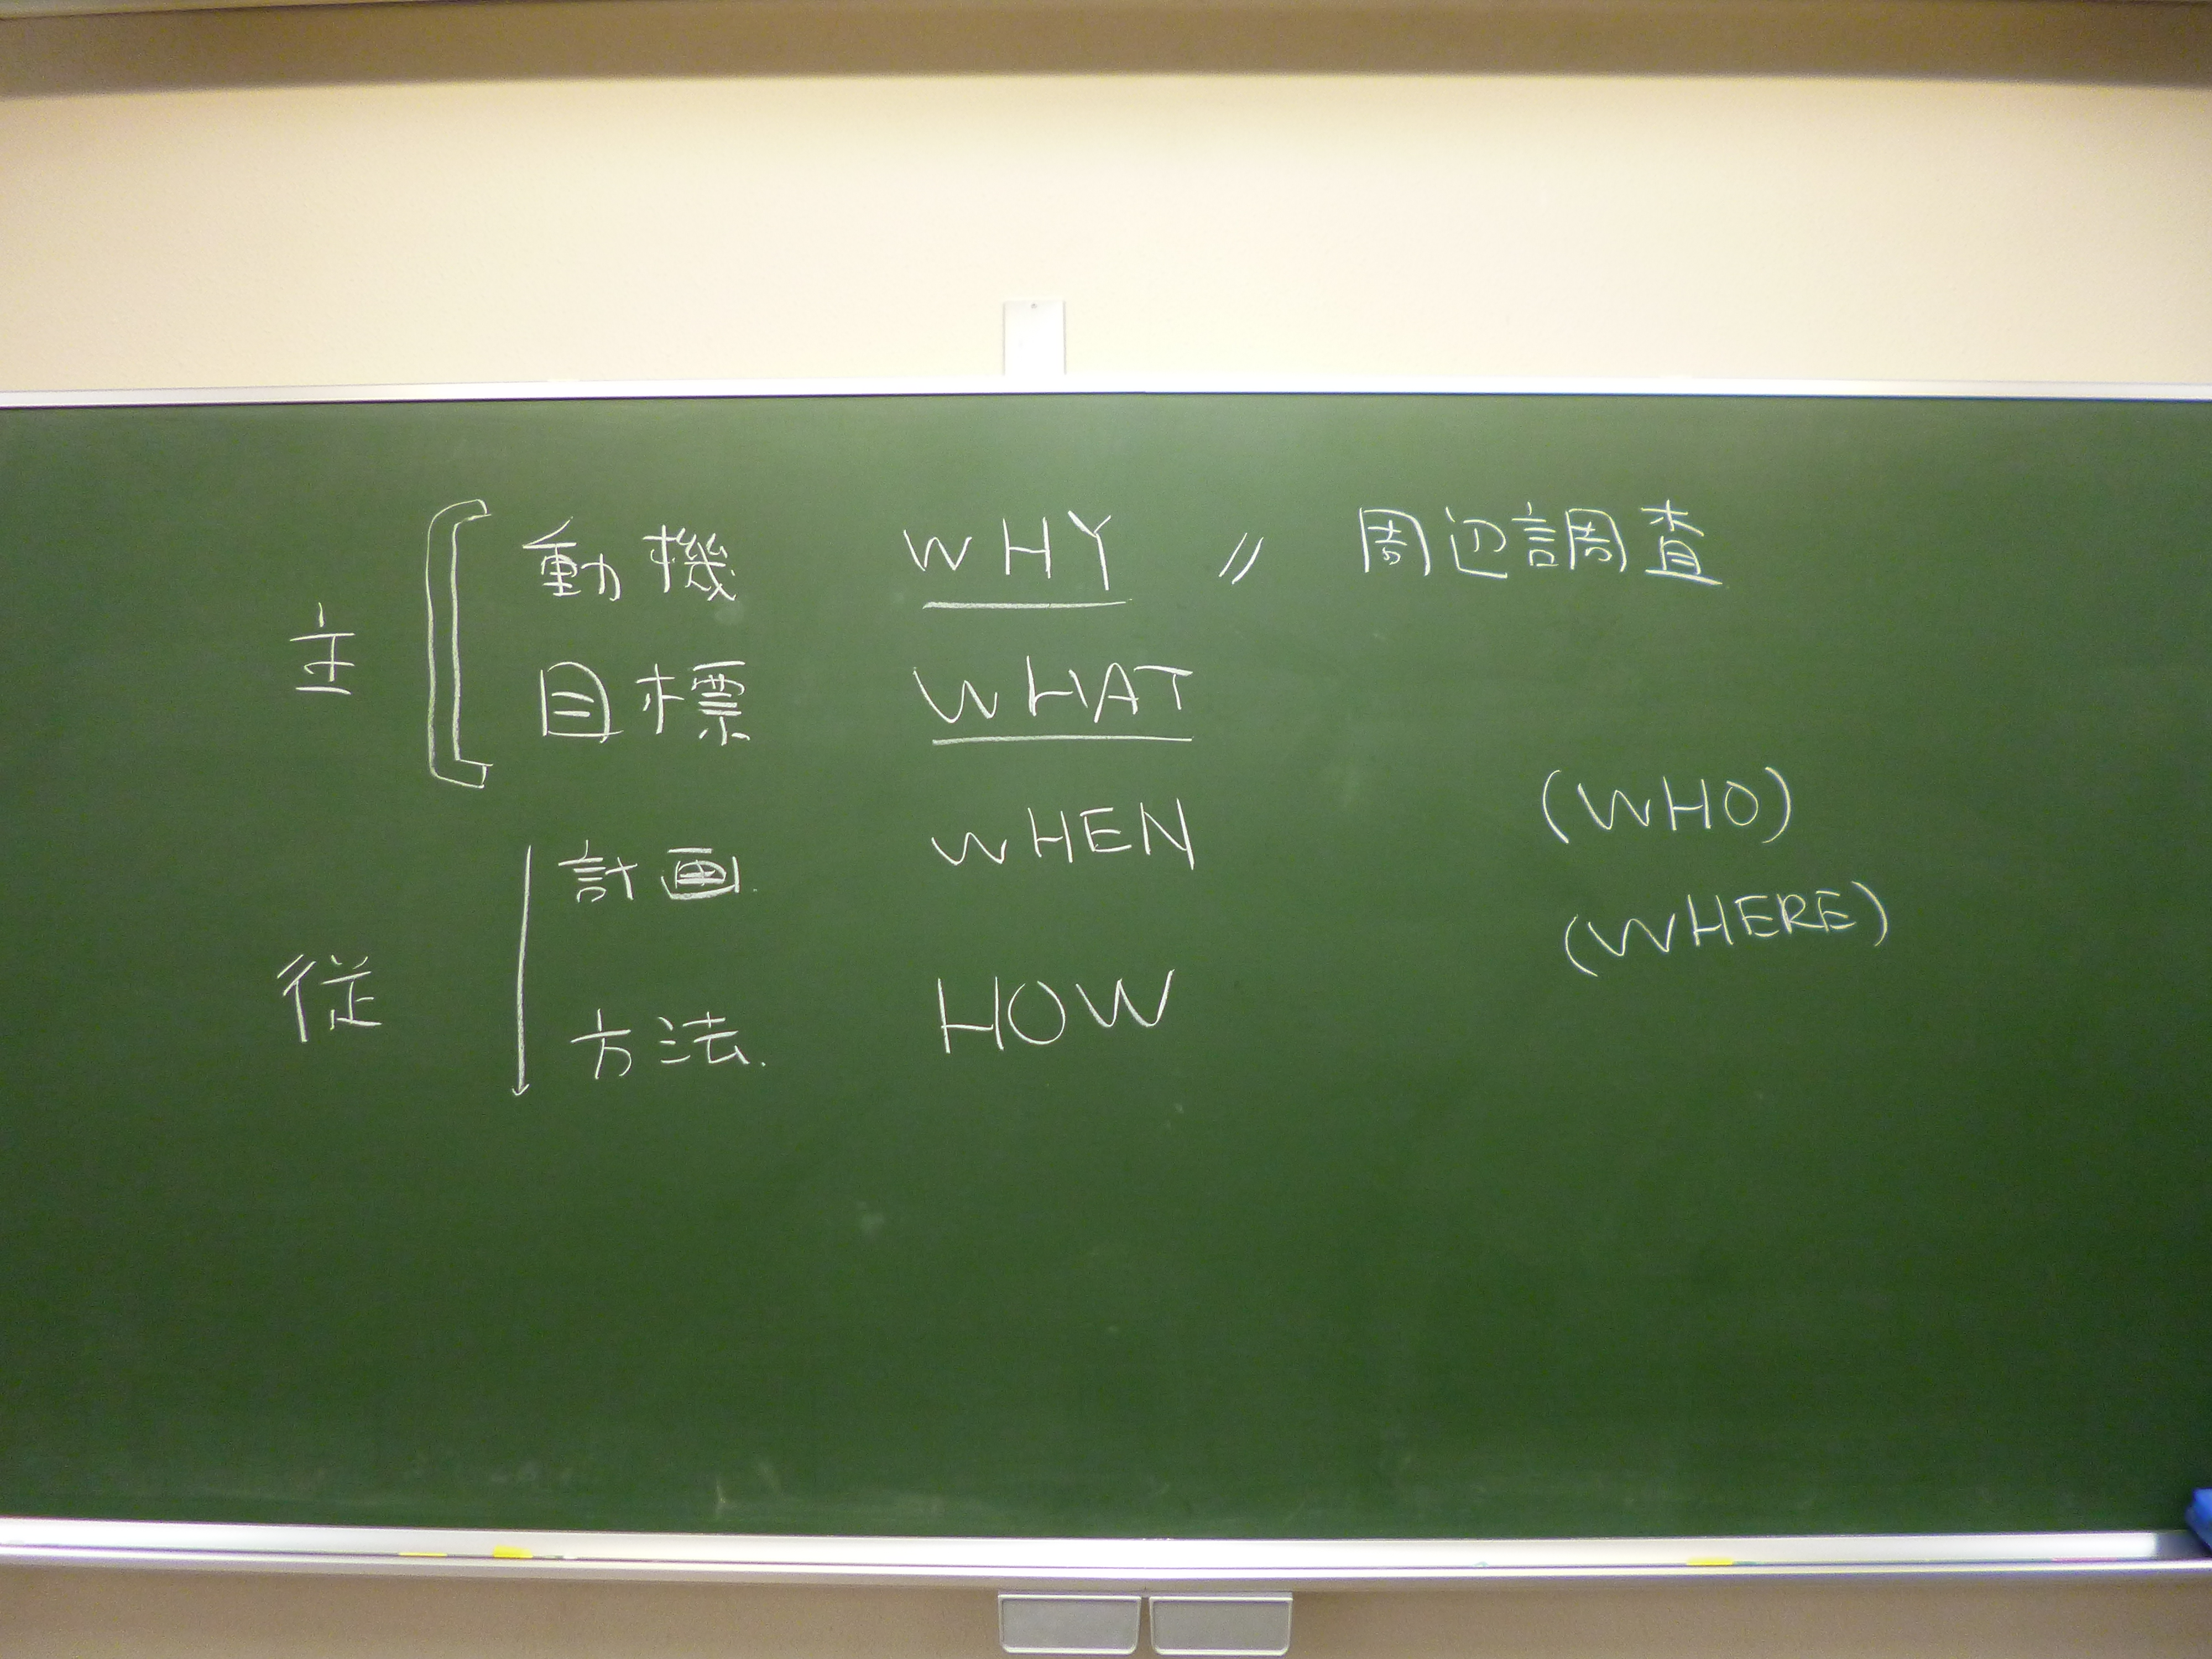 動機 WHY // 周辺調査
主
目標 WHAT
(WHO)
計画. WHEN
(WHERE)
従
方法. HOW